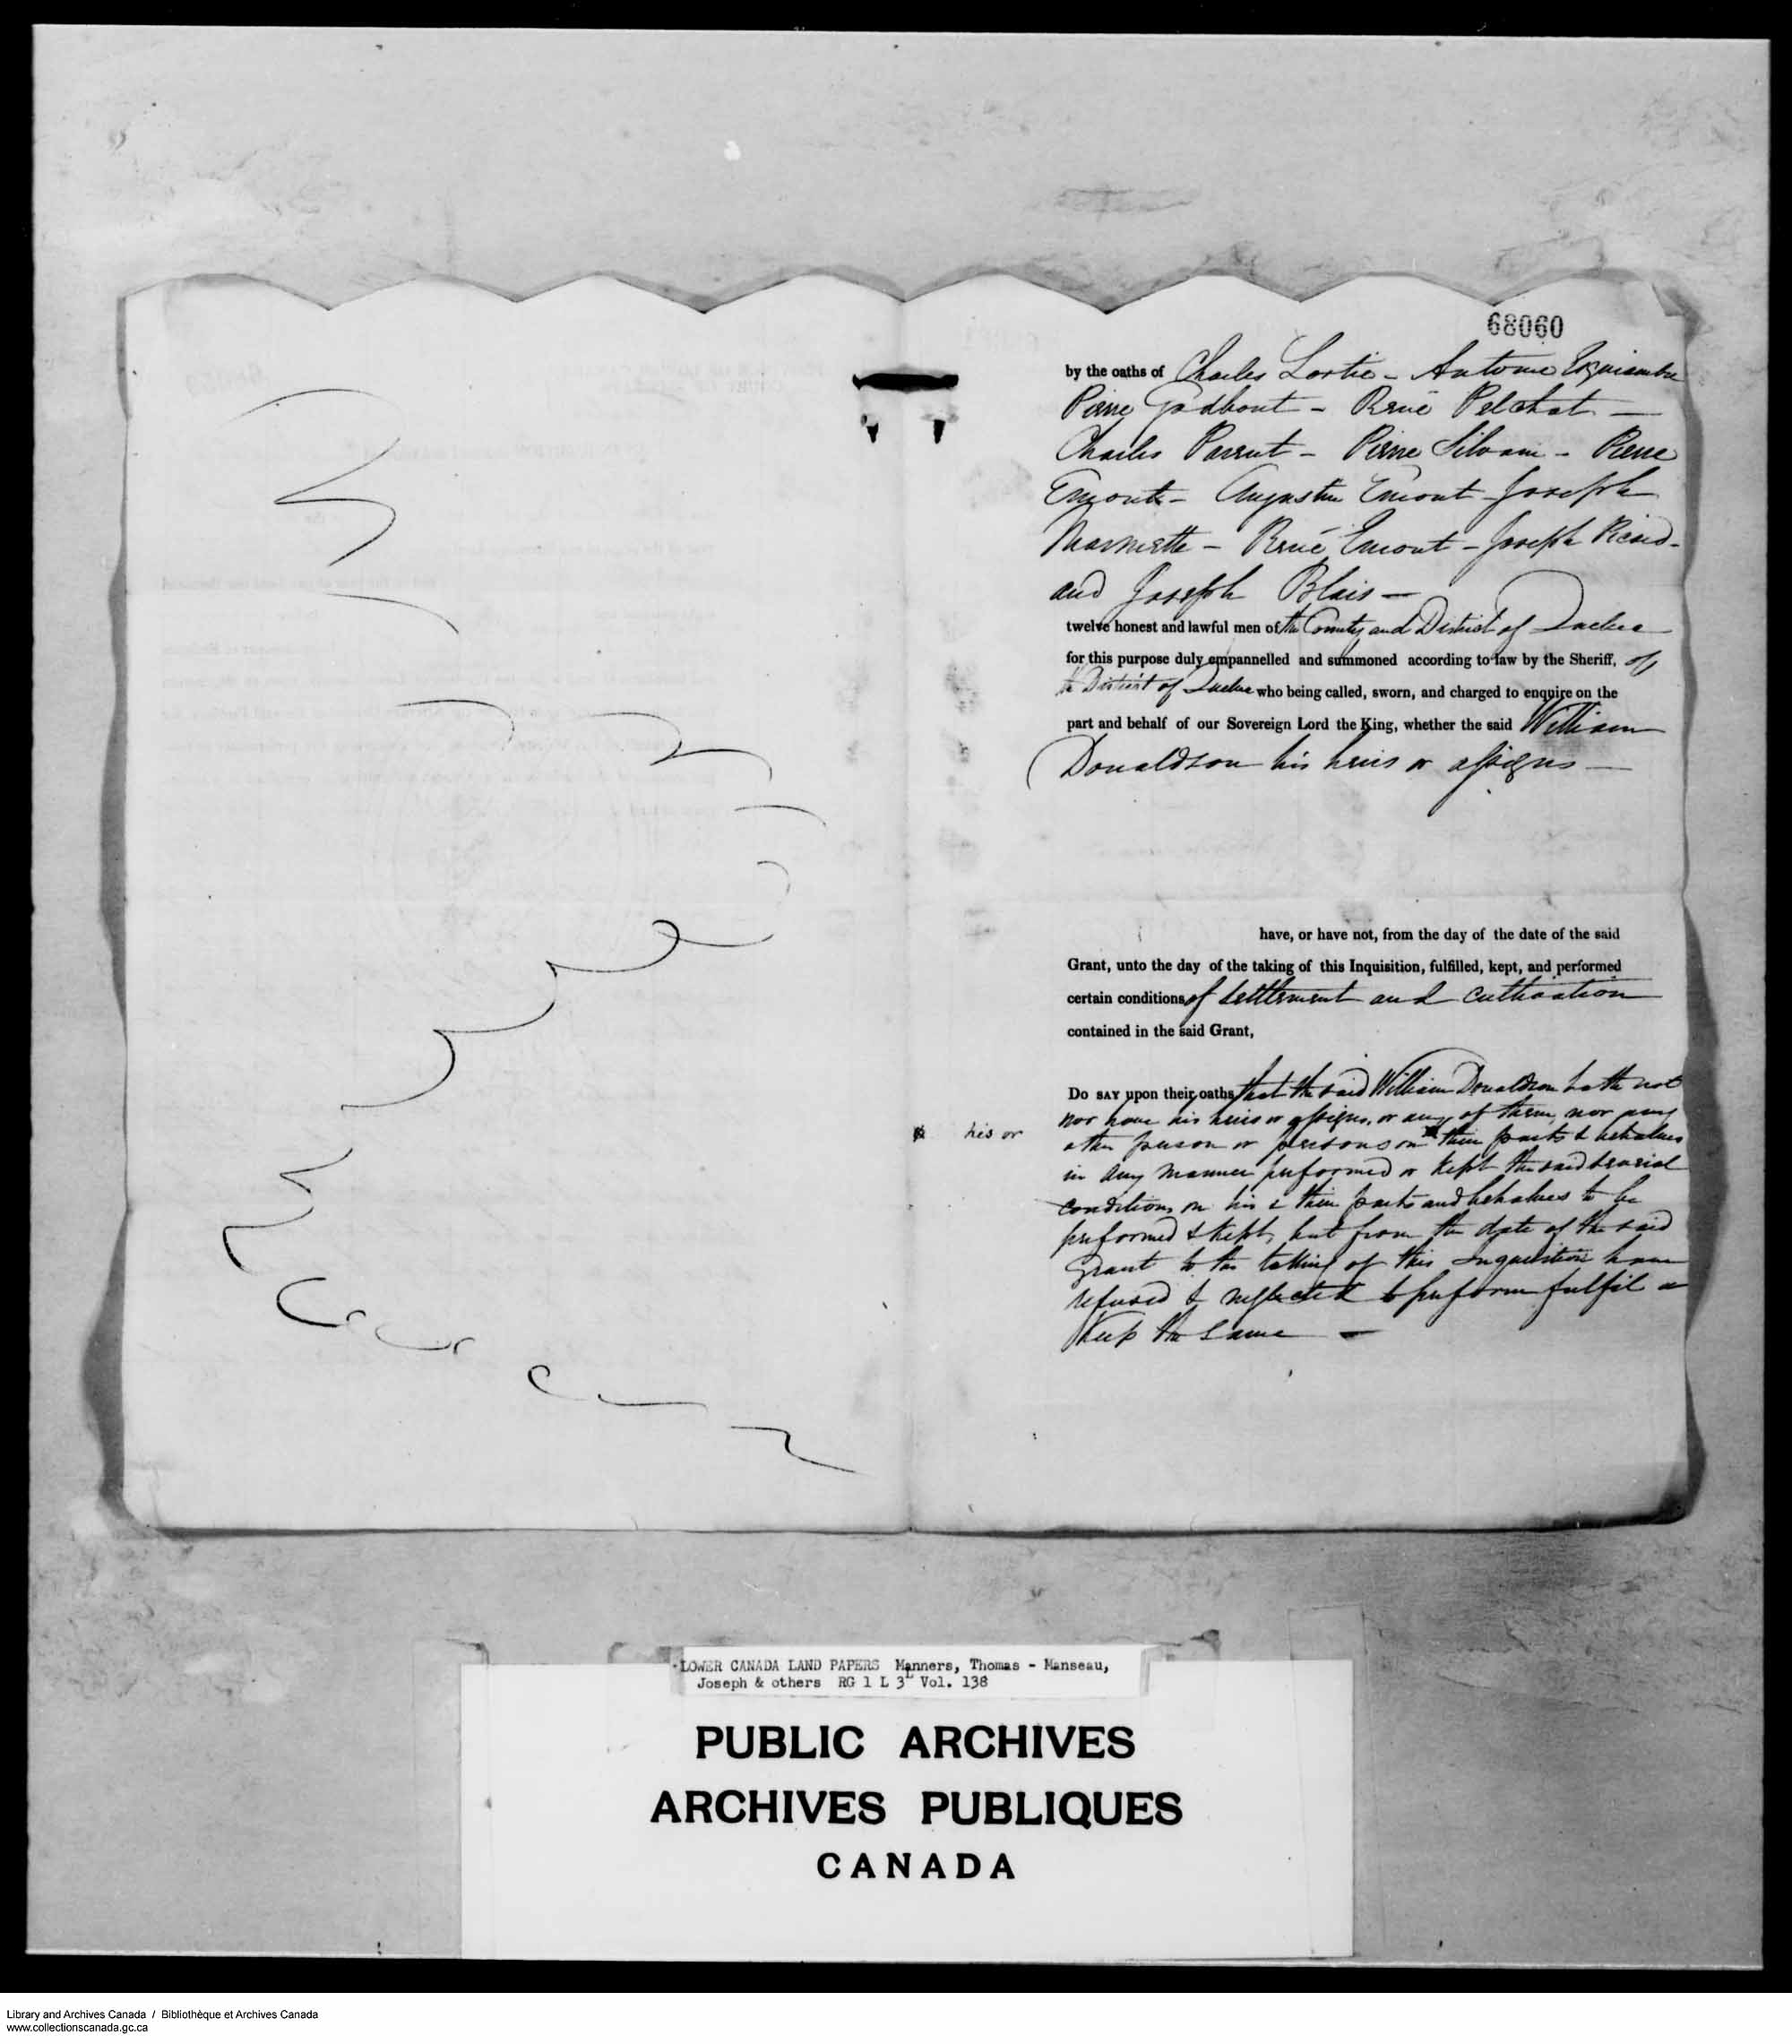 68060
by the oaths of Charles Lortie - Antoine
Pierre Godbout - René Pelchat -
Charles Parent - Pierre Silvain - Pierre
Emont - Augustin Emont - Joseph
Marmette - René Emont - Joseph Picard -
and Joseph Blais -
twelve honest and lawful men of the County and District of Quebec
for this purpose duly empannelled and summoned according to law by the Sheriff, of
the District of Quebec who being called, sworn, and charged to enquire on the
part and behalf of our Sovereign Lord the King, whether the said William
Donaldson his heirs or assigns -
have, or have not, from the day of the date of the said
Grant, unto the day of the taking of this Inquisition, fulfilled, kept, and performed
certain conditions of settlement and cultivation
contained in the said Grant,
Do SAY upon their oaths that the said William Donaldson hath not
nor have his heirs or assigns, or any of them, nor any
other person or persons on their parts & behalves
his or
in any manner performed or kept the said several
conditions on his & their parts and behalves to be
performed & kept, but from the date of the said
Grant to the taking of this Inquisition have
refused & neglected to perform fulfil or
keep the same -
LOWER CANADA LAND PAPERS Manners, Thomas - Manseau,
Joseph & others RG 1 L 3L Vol. 138
PUBLIC ARCHIVES
ARCHIVES PUBLIQUES
CANADA
Library and Archives Canada / Bibliothèque et Archives Canada
www.collectionscanada.gc.ca